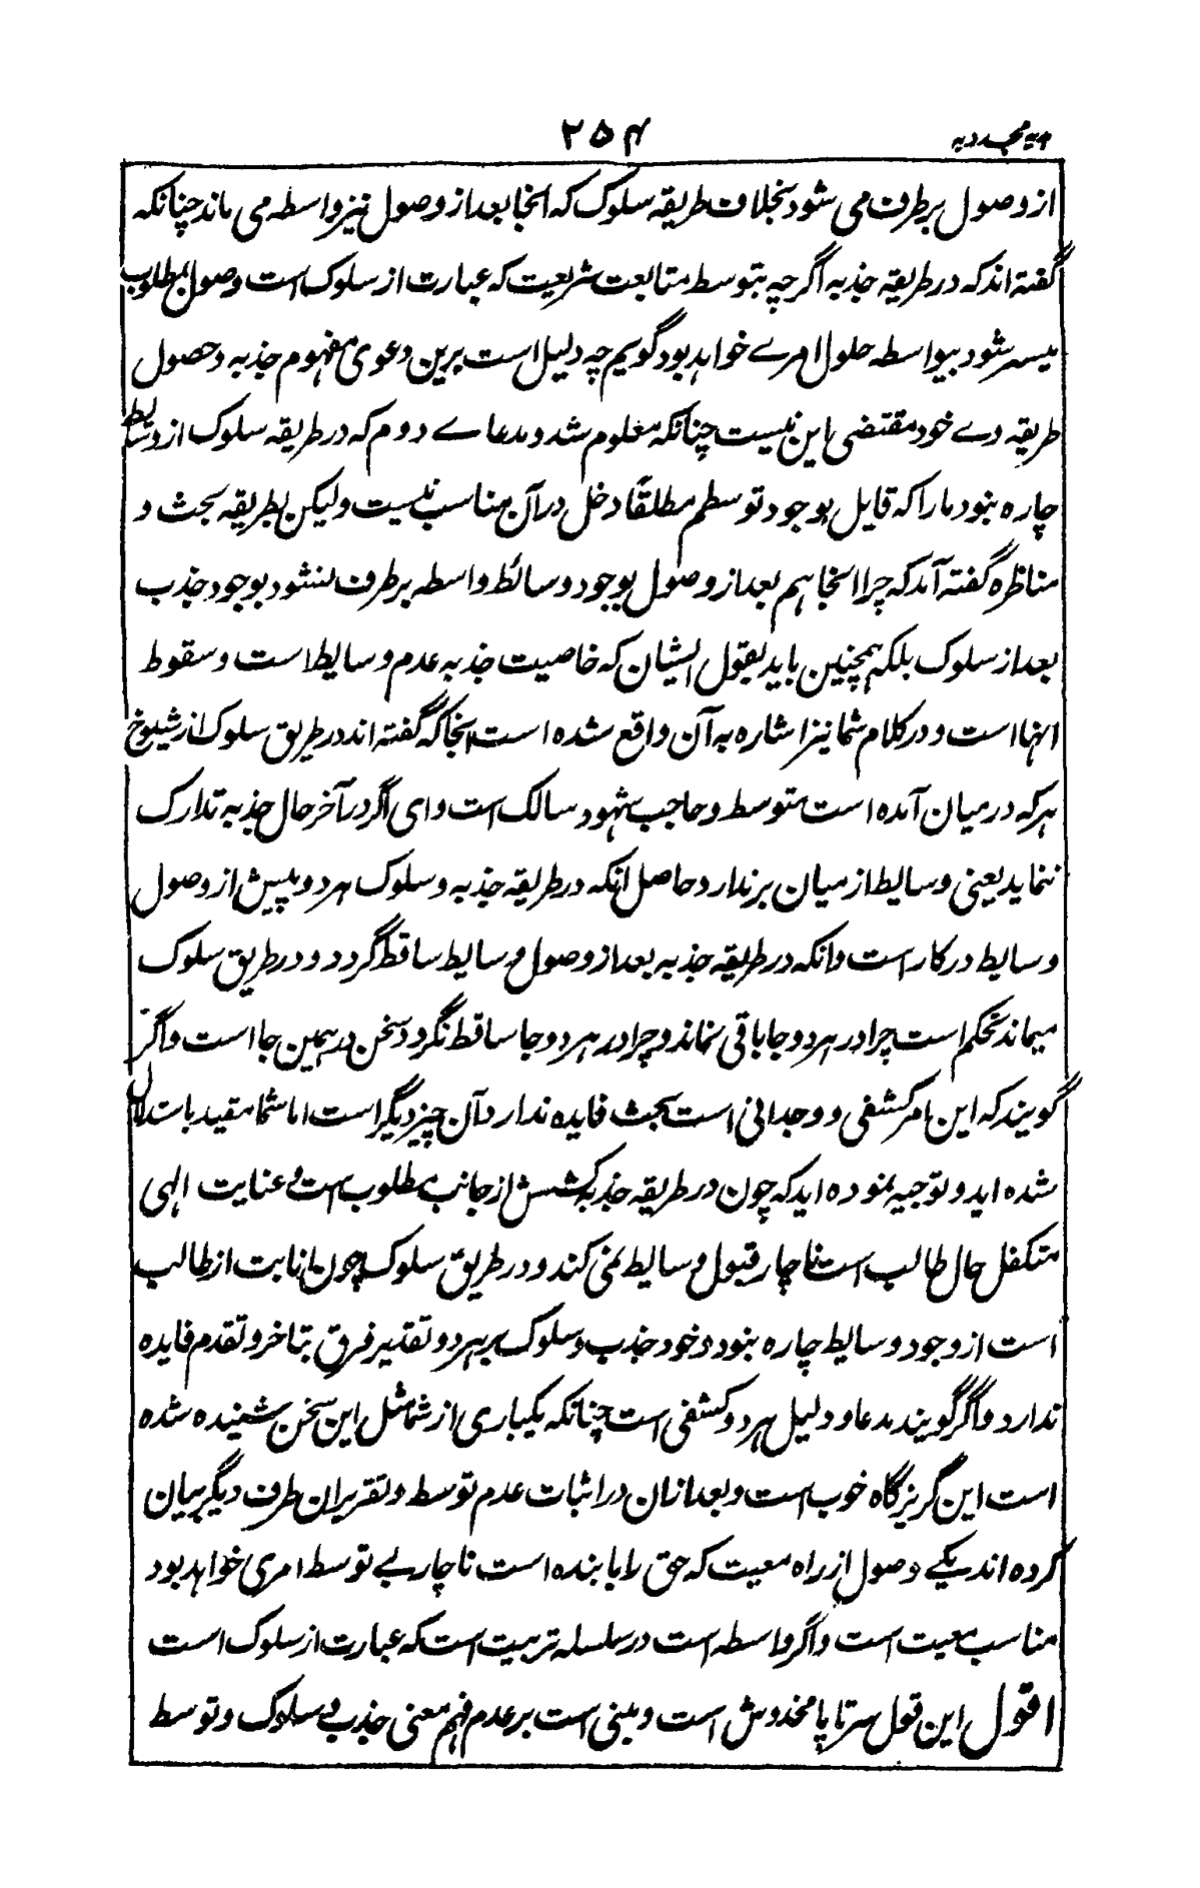 ۲۵۴
از وصول برطرف می شود بخلاف طریقه سلوک که انجا بعد از وصول نیز واسطه می ماند چنانکه
گفته اند که در طریقه جذبه اگرچه بتوسط متابعت شریعت که عبارت از سلوک است وصول بمطلوب
میسر شود بیواسطه حلول امرے خواهد بود گویم چه دلیل است برین دعوی مفهوم جذبه و حصول
طریقه وے خود مقتضی این نیست چنانکه معلوم شد و مدعاے دوم که در طریقه سلوک از وسایط
چاره نبود ما را که قایل بوجود توسطم مطلقًا دخل در آن مناسب نیست ولیکن بطریقه بحث و
مناظره گفته آمد که چرا اینجا هم بعد از وصول بوجود وسائط واسطه برطرف نشود بوجود جذب
بعد از سلوک بلکه همچنین باید بقول ایشان که خاصیت جذبه عدم وسایط است و سقوط
انها است و در کلام شما نیز اشاره به آن واقع شده است اینجا که گفته اند در طریق سلوک از شیوخ
هر که درمیان آمده است متوسط و حاجب شهود سالک است وای اگر در آخر حال جذبه تدارک
ننماید یعنی وسایط از میان برندارد و حاصل انکه در طریقه جذبه و سلوک هر دو پیش از وصول
وسایط در کار است و انکه در طریقه جذبه بعد از وصول وسایط ساقط گردد و در طریق سلوک
میماند تحکم است چرا در هر دو جا باقی نماند و چرا در هر دو جا ساقط نگردد سخن در همین جا است و اگر
گویند که این امر کشفی و وجدانی است بحث فایده ندارد آن چیز دیگر است اما شما مقید باستدلال
شده اید و توجیه نموده اید که چون در طریقه جذبه کشش از جانب مطلوب است و عنایت الهی
متکفل حال طالب است ناچار قبول وسایط نمی کند و در طریق سلوک چون انابت از طالب
است از وجود وسایط چاره نبود و خود جذب و سلوک بر هر دو تقدیر فرق بتاخر و تقدم فایده
ندارد و اگر گویند مدعا و دلیل هر دو کشفی است چنانکه یکباری از شما مثل این سخن شنیده شده
است این گریزگاه خوب است و بعد ازان در اثبات عدم توسط و تقریر ان طرف دیگر بیان
کرده اند یکے وصول از راه معیت که حق را با بنده است ناچار بے توسط امری خواهد بود
مناسب معیت است و اگر واسطه است در سلسله تربیت است که عبارت از سلوک است
اقول این قول سرتا پا مخدوش است و مبنی است بر عدم فهم معنی جذب و سلوک و توسط